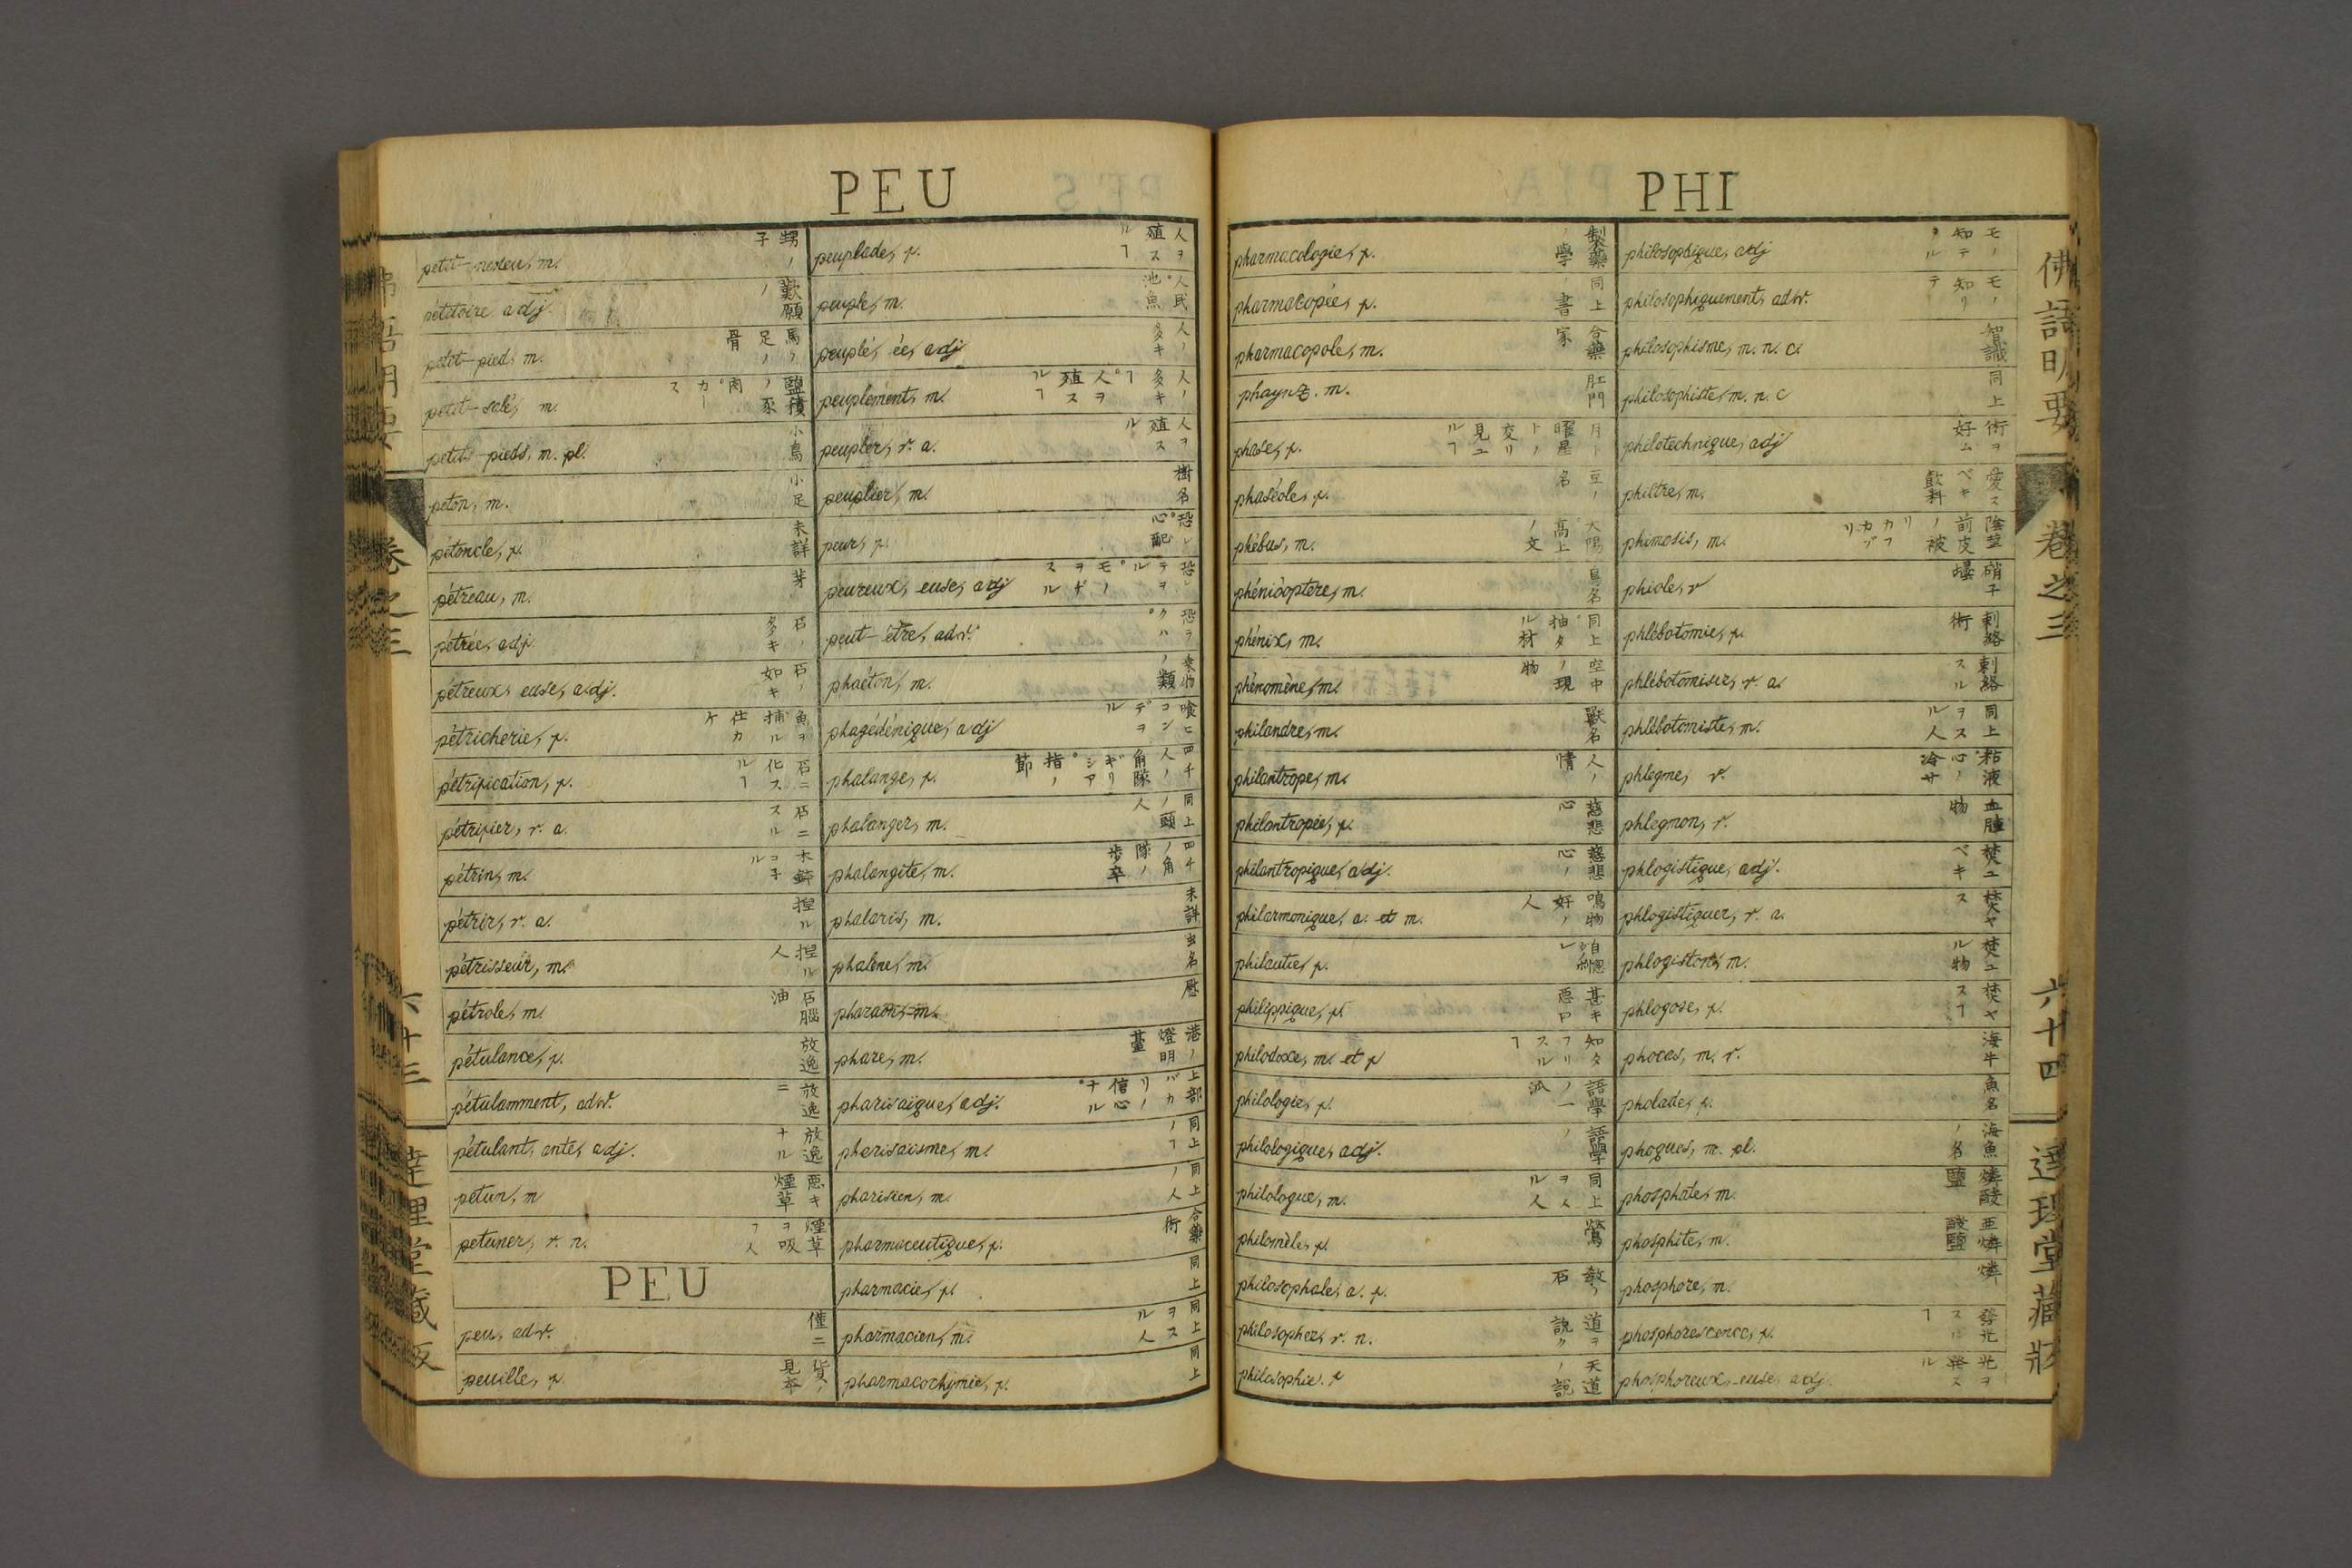 PEU
petit-neveu, m. 甥ノ子
pétitoire adj. 歎願ノ
petit-pied, m. 馬ノ足ノ骨
petit-salé, m. 鹽積ノ豕肉カース
petits-pieds, m. pl. 小鳥
peton, m. 小足
pétoncle, f. 未詳
pétreau, m. 芽
pétrée, adj. 石ノ多キ
pétreux, euse, adj. 石ノ如キ
pétricherie, f. 魚ヲ捕ル仕カケ
pétrification, f. 石ニ化スルヿ
pétrifier, v. a. 石ニスル
pétrin, m.
pétrir, v. a. 捏ル
pétrisseur, m. 捏ル人
pétrole, m. 石腦油
pétulance, f. 放逸
pétulamment, adv. 放逸ニ
pétulant, ante, adj. 放逸ナル
petun, m 悪キ煙草
petuner, v. n. 煙草ヲ吸フ人
PEU
peu, adv. 僅ニ
peuille, f. 貨ノ見本
peuplade, f. 人ヲ殖スルヿ
peuple, m. 人民。池魚
peuplé, ée, adj 人ノ多キ
peuplement, m. 人ノ多キヿ。人ヲ殖スルヿ
peupler, v. a. 人ヲ殖スル
peuplier, m. 樹名
peur, f. 恐レ。心配
peureux, euse, adj
peut-être, adv. 恐ラクハ。
phaéton, m. 乗物ノ類
phagédénique, adj 喰ニコンデヲル
phalange, f.
phalanger, m. 同上ノ頭人
phalangite, m. 四千ノ角隊ノ歩卒
phalaris, m. 未詳
phalène, m. 虫名
pharaon, m.
phare, m. 港ノ燈明臺
pharisaïque, adj. 上部バカリノ信心ナル。
pharisaïsme, m. 同上ノヿ
pharisien, m. 同上ノ人
pharmaceutique, f. 合藥術
pharmacie, f. 同上
pharmacien, m. 同上ヲスル人
pharmacochymie, f. 同上
PHI
pharmacologie, f. 製藥ノ學
pharmacopée, f. 同上書
pharmacopole, m. 合藥家
phaynz. m. 肛門
phase, f. 月ト曜星トノ交リ見ユルヿ
phaséole, f. 豆ノ名
phébus, m. 大陽。高上ノ文
phénicoptère, m. 鳥名
phénix, m. 同上。抽タル材
phénomène, m. 空中ノ現物
philandre, m. 獸名
philantrope, m. 人ノ情
philantropie, f. 慈悲心
philantropique, adj. 慈悲心ノ
philarmonique, a. et m. 鳴物好ノ人
philautie, f.
philippique, f. 甚キ悪口
philodoxe, m. et f 知タフリスルヿ
philologie, f. 語學ノ一派
philologique, adj. 語學ノ
philologue, m. 同上ヲスル人
philomèle, f. 鶯
philosophale, a. f.
philosopher, v. n. 道ヲ説ク
philosophie. f 天道ノ説
philosophique, adj モノ知テル。
philosophiquement, adv. モノ知リテ
philosophisme, m. n. c. 智識
philosophiste, m. n. c 同上
philotechnique, adj 術ヲ好ム
philtre, m. 愛スベキ飲料
phimosis, m.
phiole, f 硝子壜
phlébotomie, f. 刺絡術
phlébotomiser, v. a. 刺絡スル
phlébotomiste, m. 同上ヲスル人
phlegme, v. 粘液。心ノ冷サ
phlegmon, v. 血腫物
phlogistique, adj. 焚ユベキ
phlogistiquer, v. a. 焚ヤス
phlogiston, m. 焚ユル物
phlogose, f. 焚ヤスヿ
phocas, m. v. 海牛
pholade, f. 魚名
phoques, m. pl. 海魚ノ名
phosphate, m. 燐酸鹽
phosphite, m. 亜燐酸鹽
phosphore, m. 燐
phosphorescence, f. 發光スルヿ
phosphoreux, euse, adj. 光ヲ発スル
佛語明要 巻之三 六十四 達理堂藏版
巻之三 六十三